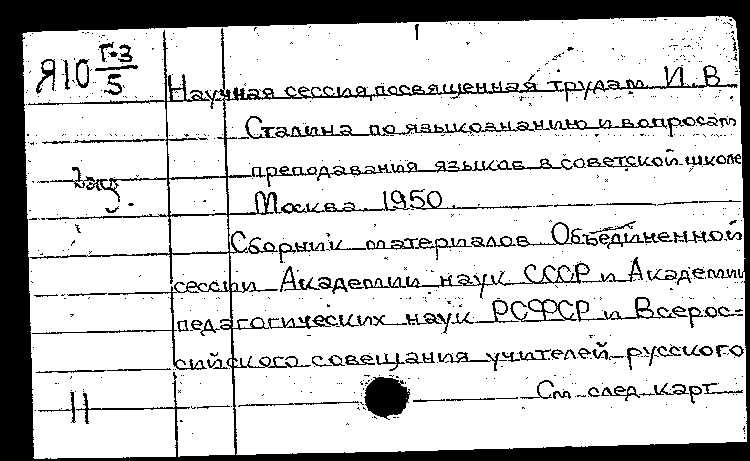 Я10 Г-3/5
Научная сессия, посвященная трудам И. В
Сталина по языкознанию и вопросам
преподавания языков в советской школе
2 экз.
Москва. 1950.
Сборник материалов Объединенной
сессии Академии наук СССР и Академии
педагогических наук РСФСР и Всерос=
сийского совещания учителей русского
11
См след. карт